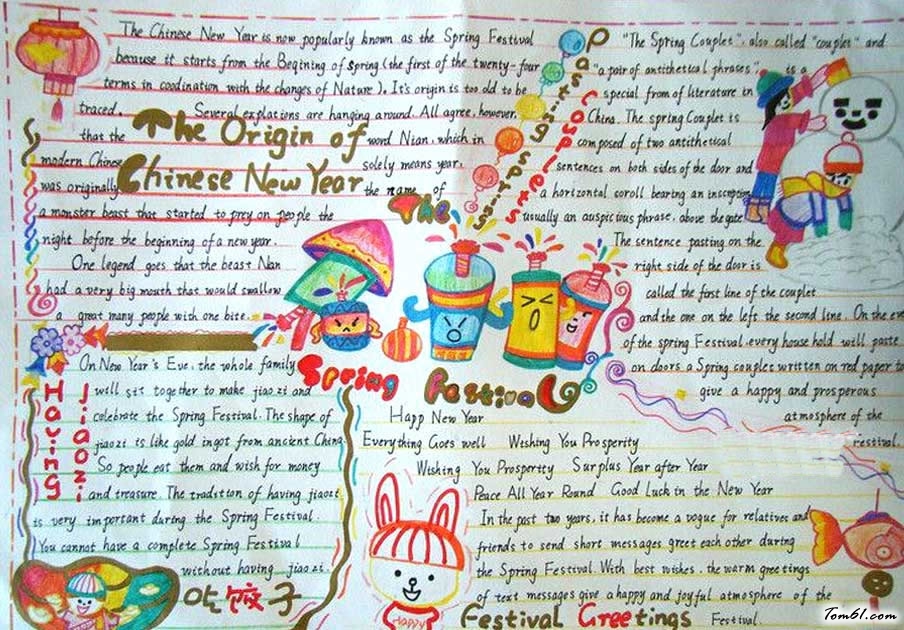 The Chinese New Year is now popularly known as the Spring Festival
because it starts from the Begining of Spring (the first of the twenty-four
terms in coodination with the changes of Nature). It's origin is too old to be
traced. Several explations are hanging around. All agree, however,
that the word Nian, which in
modern Chinese solely means year,
was originally the name of
a monster beast that started to prey on people the
night bofore the beginning of a new year.
One legend goes that the beast Nan
had a very big mouth that would swallow
a great many people with one bite.
The Origin of
Chinese New Year
Pasting Spring
Couplets
"The Spring Couplet", also called "couplet" and
"a pair of antithetical phrases", is a
special from of literature in
China. The spring Couplet is
composed of two antithetical
sentences on both sides of the door and
a horizontal coroll bearing an inscription
usually an auspicious phrase, above the gate
The sentence pasting on the
right side of the door is
called the first line of the couplet
and the one on the left the second line. On the eve
of the spring Festival, every house hold will paste
on doors a Spring couplet written on red paper to
give a happy and prosperous
atmosphere of the
Festival.
The
Spring Festival
Having
Jiaozi
On New Year's Eve, the whole family
will sit together to make jiaozi and
celebrate the Spring Festival. The shape of
jiaozi is like gold ingot from ancient China
So people eat them and wish for money
and treasure. The tradition of having jiaozi
is very important during the Spring Festival.
You cannot have a complete Spring Festival
without having jiaozi.
吃饺子
Happ New Year
Everything Goes well Weshing You Prosperity
Wishing You Prosperity Surplus Year after Year
Peace All Year Round Good Luck in the New Year
In the past two years, it has become a vogue for relatives and
friends to send short messages greet each other during
the Spring Festival. With best wishes, the warm greetings
of text messages give a happy and joyful atmosphere of the
Festival.
Festival Greetings
Happy
Tom61.com